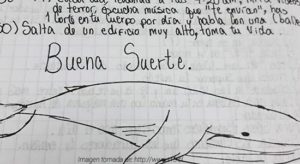 de terror, escucha música que "te envian", has
1 corte en tu cuerpo por día, y habla con una
50) Salta de un edificio muy alto, toma tu vida.
Buena Suerte.
Imagen tomada de: http://www.